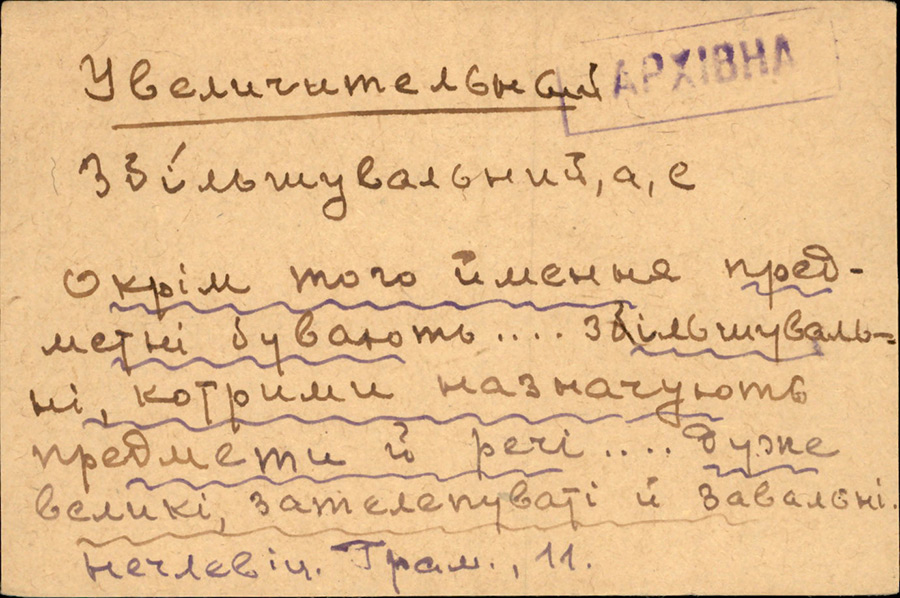 Увеличительный
АРХІВНА
Збі́льшувальний, а, е
Окрім того ймення пред-
метні бувають .... збільшуваль-
ні, котрими назначують
предмети й речі .... дуже
великі, зателепуваті й завальні.
Нечлєвіц. Грам., 11.